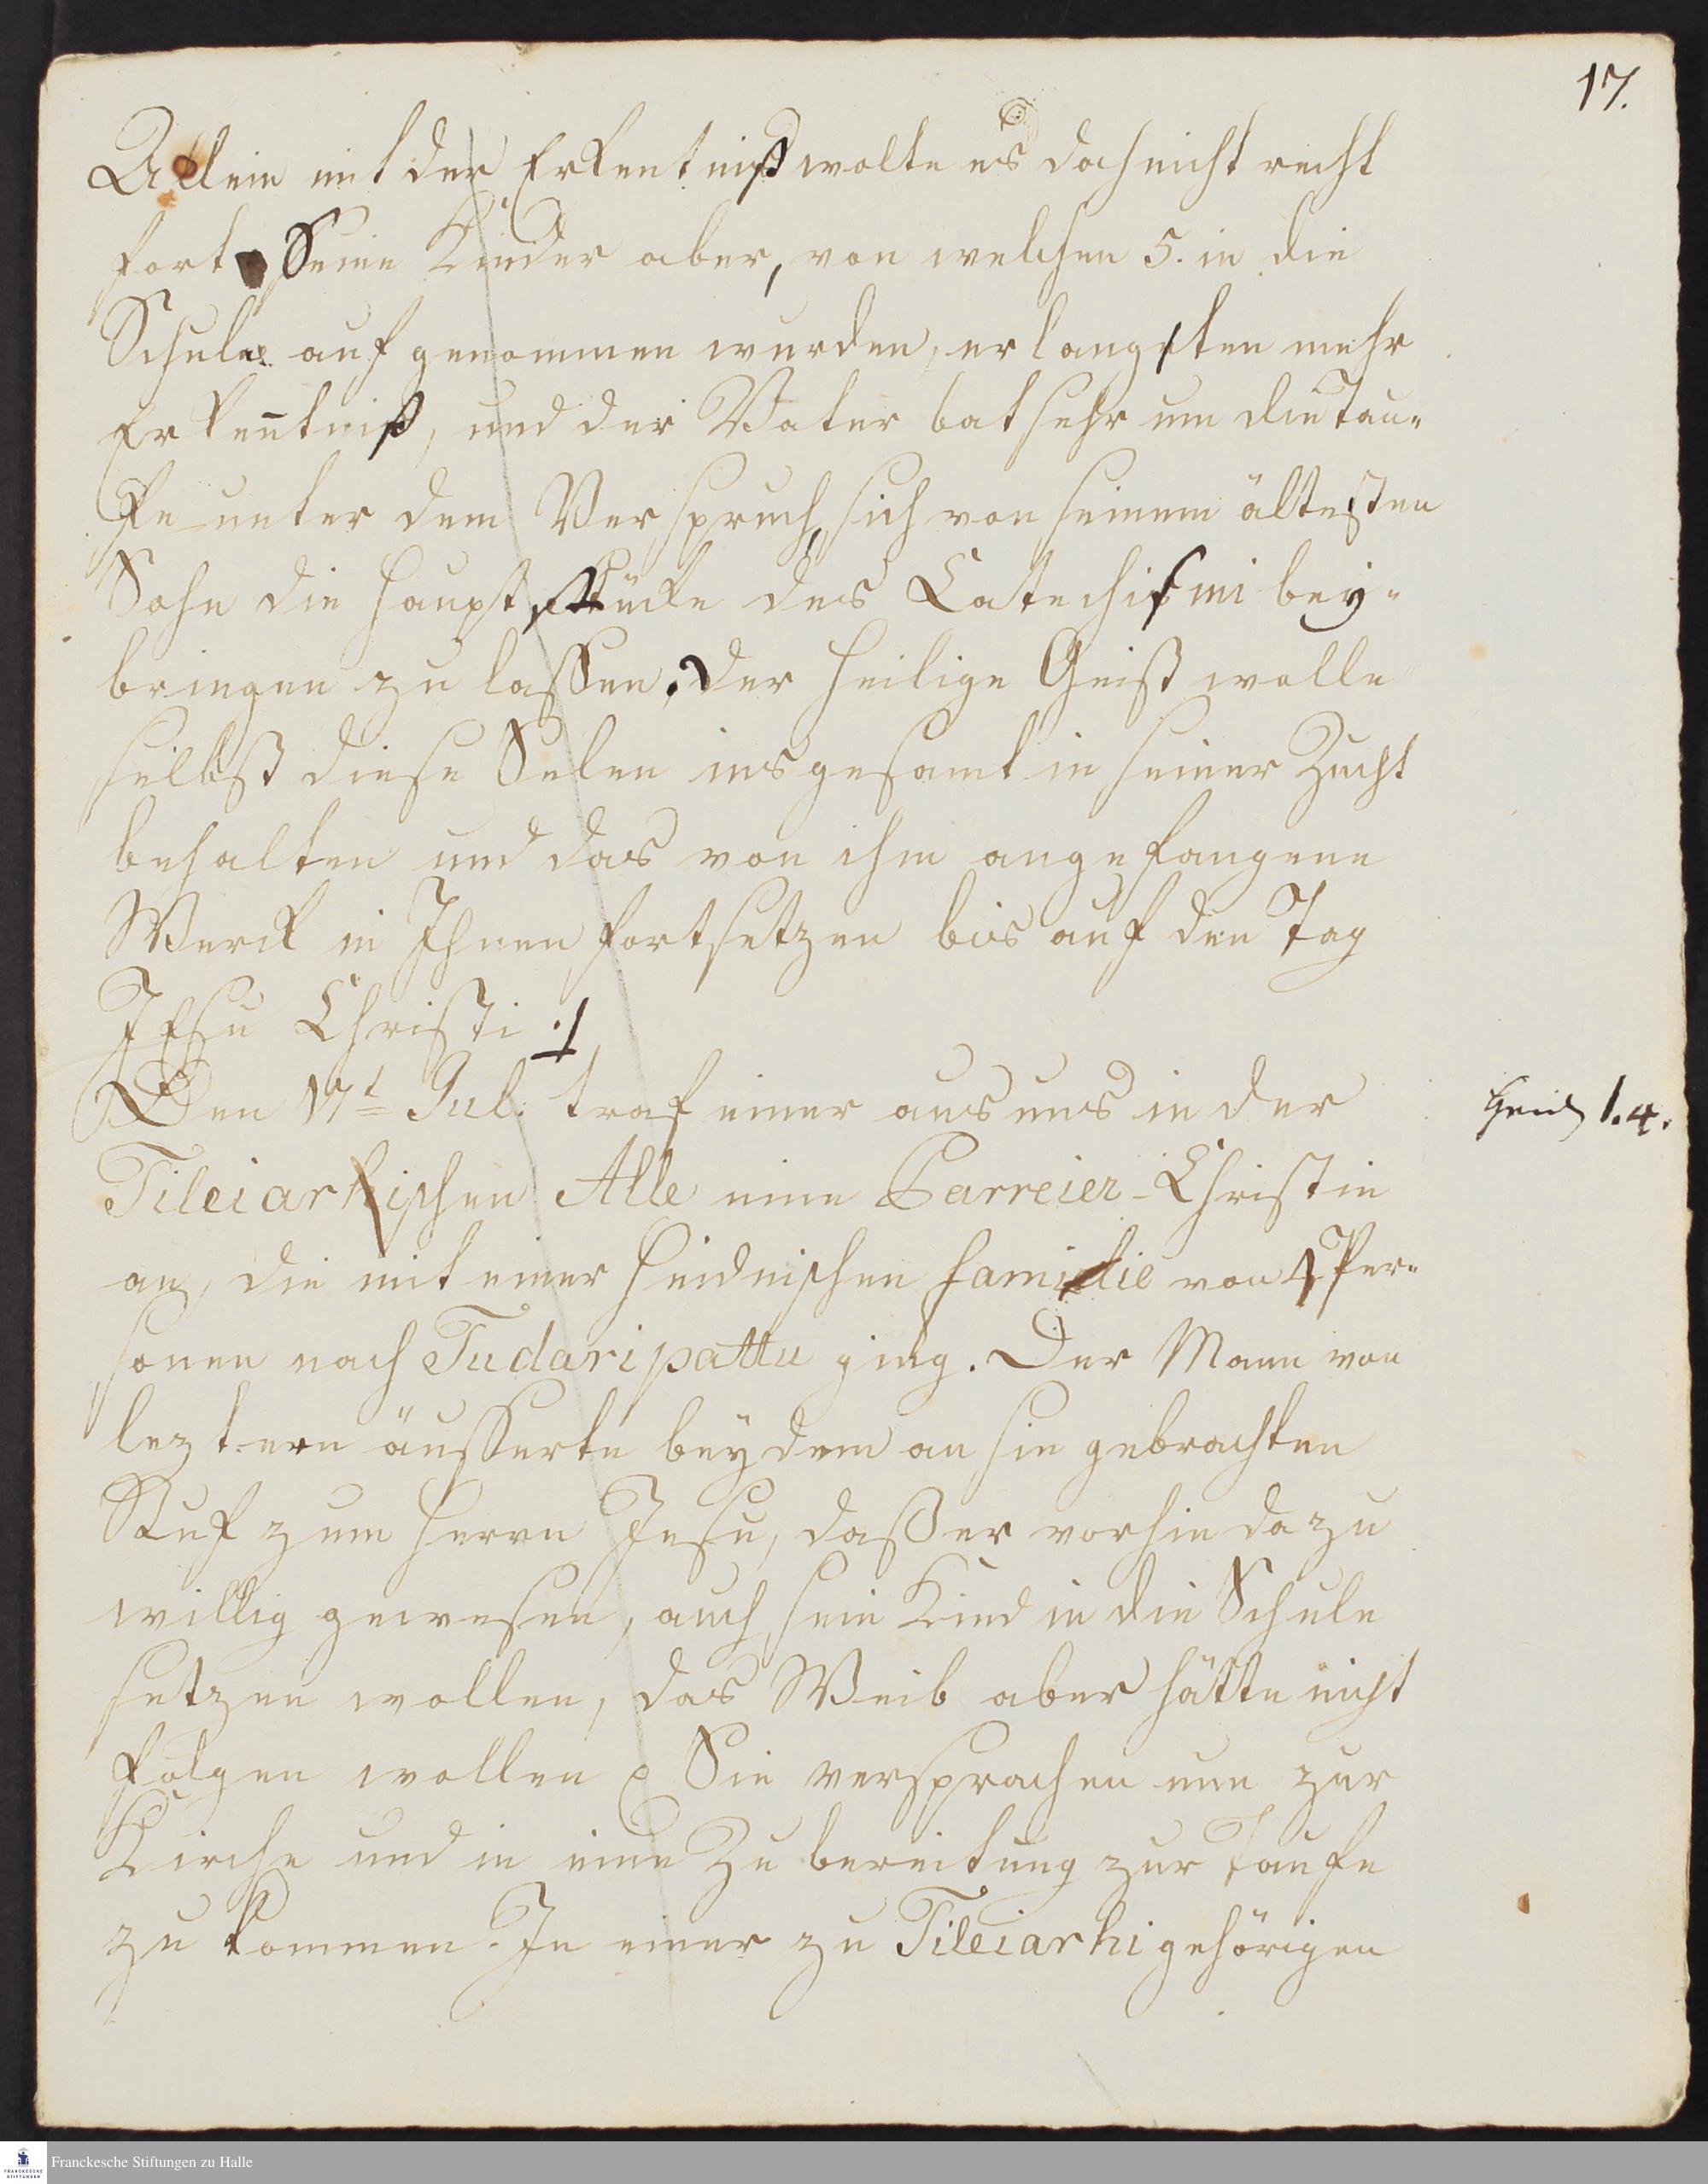 17.
Allein mit der Erkentniß wolte es doch nicht recht
fort. Seine Kinder aber, von welchen 5. in die
Schule aufgenommen wurden, erlangten mehr
Erkentniß, und der Vater bat sehr um die Tau-
fe unter dem Verspruch, sich von seinem ältesten
Sohn die Hauptstücke des Catechismi bey-
bringen zu lassen. Der Heilige Geist wolle
selbst diese Selen insgesamt in seiner Zucht
behalten und das von ihm angefangene
Werck in Ihnen fortsetzen bis auf den Tag
JEsu Christi!
Den 17t Jul. traf einer aus uns in der
Heid 1.4.
Tileiarhischen Alle eine Barreier-Christin
an, die mit einer heidnischen Familie von 4 Per-
sonen nach Tudaripattu ging. Der Mann von
leztern äusserte bey dem an sie gebrachten
Ruf zum Herrn Jesu, daß er vorhin dazu
willig gewesen, auch sein Kind in die Schule
setzen wollen, das Weib aber hätte nicht
folgen wollen. Sie versprachen nun zur
Kirche und in eine Zubereitung zur Taufe
zu kommen. In einer zu Tileiarhi gehörigen
Franckesche Stiftungen zu Halle